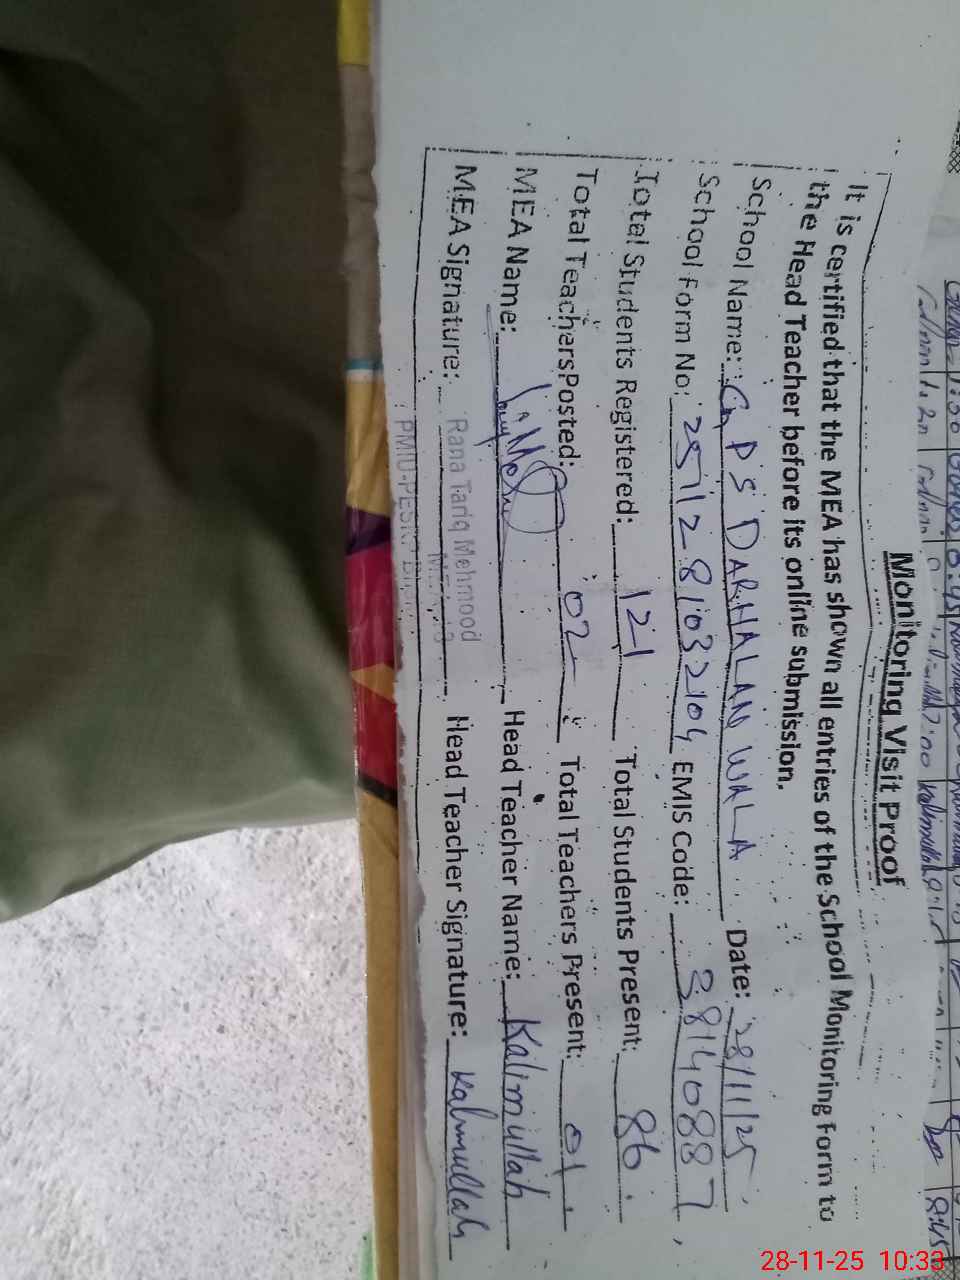 Monitoring Visit Proof
It is certified that the MEA has shown all entries of the School Monitoring Form to
the Head Teacher before its online submission.
School Name: GPS DARHALAN WALA Date: 28/11/25
School Form No: 25112 81032104 EMIS Code: 38140887
Total Students Registered: 121 Total Students Present: 86
Total Teachers Posted: 02 Total Teachers Present: 01
MEA Name: Head Teacher Name: Kalimullah
MEA Signature: Rana Tariq Mehmood Head Teacher Signature: Kalimullah
28-11-25 10:33